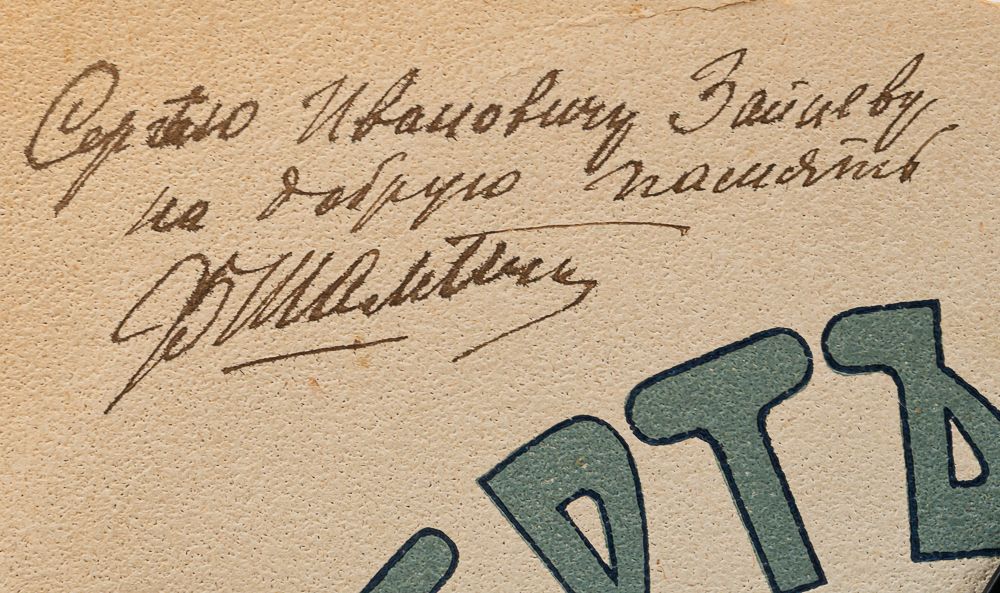 Сергею Ивановичу Зайцеву
на добрую память
ФШаляпин
РТЪ